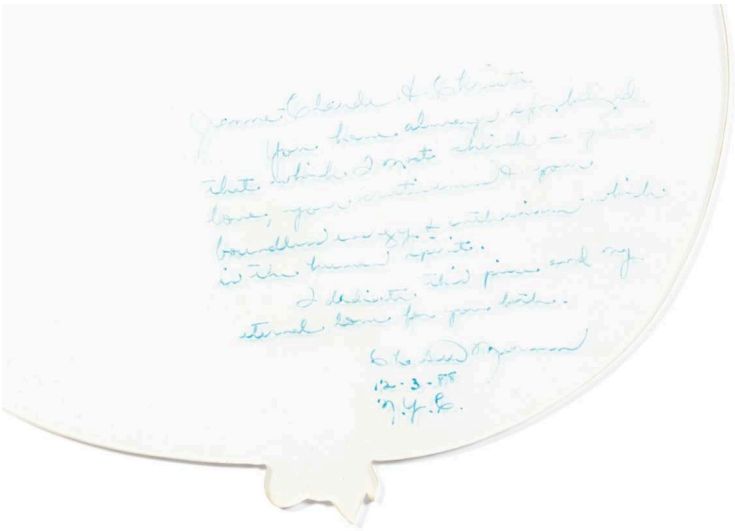 Jeanne-Claude & Christo
You have always symbolized
that which I most cherish - your
love, your commitment & your
boundless energy & enthusiasm which
is the human spirit.
I dedicate this piece and my
eternal love for you both.
12-3-88
N.Y.C.